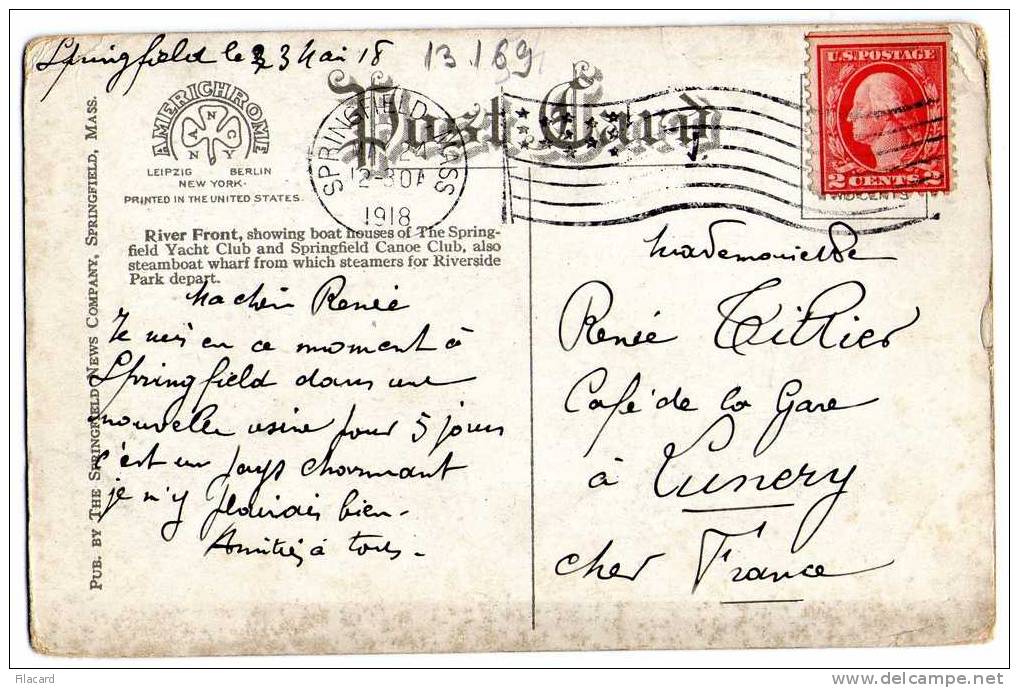 Springfield le 23 Mai 18
13.169
AMERICHROME
A N C N Y
LEIPZIG BERLIN
NEW YORK.
PRINTED IN THE UNITED STATES.
Post Card
SPRINGFIELD, MASS
24
12-30A
1918
U.S. POSTAGE
2 CENTS 2
TWO CENTS
PUB. BY THE SPRINGFIELD NEWS COMPANY, SPRINGFIELD, MASS.
River Front, showing boat houses of The Spring-
field Yacht Club and Springfield Canoe Club, also
steamboat wharf from which steamers for Riverside
Park depart.
Ma chère Renée
Je suis en ce moment à
Springfield dans une
nouvelle usine pour 5 jours
c'est un pays charmant
je m'y plairais bien -
Amitiés à tous -
Mademoiselle
Renée Tillier
Café de la Gare
à Lunery
Cher France
Filacard
delcampe.net